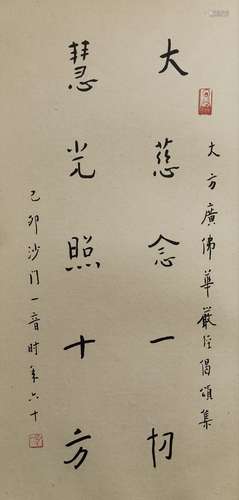 大方廣佛華嚴經偈頌集
大慈念一切
慧光照十方
己卯沙門一音時年六十